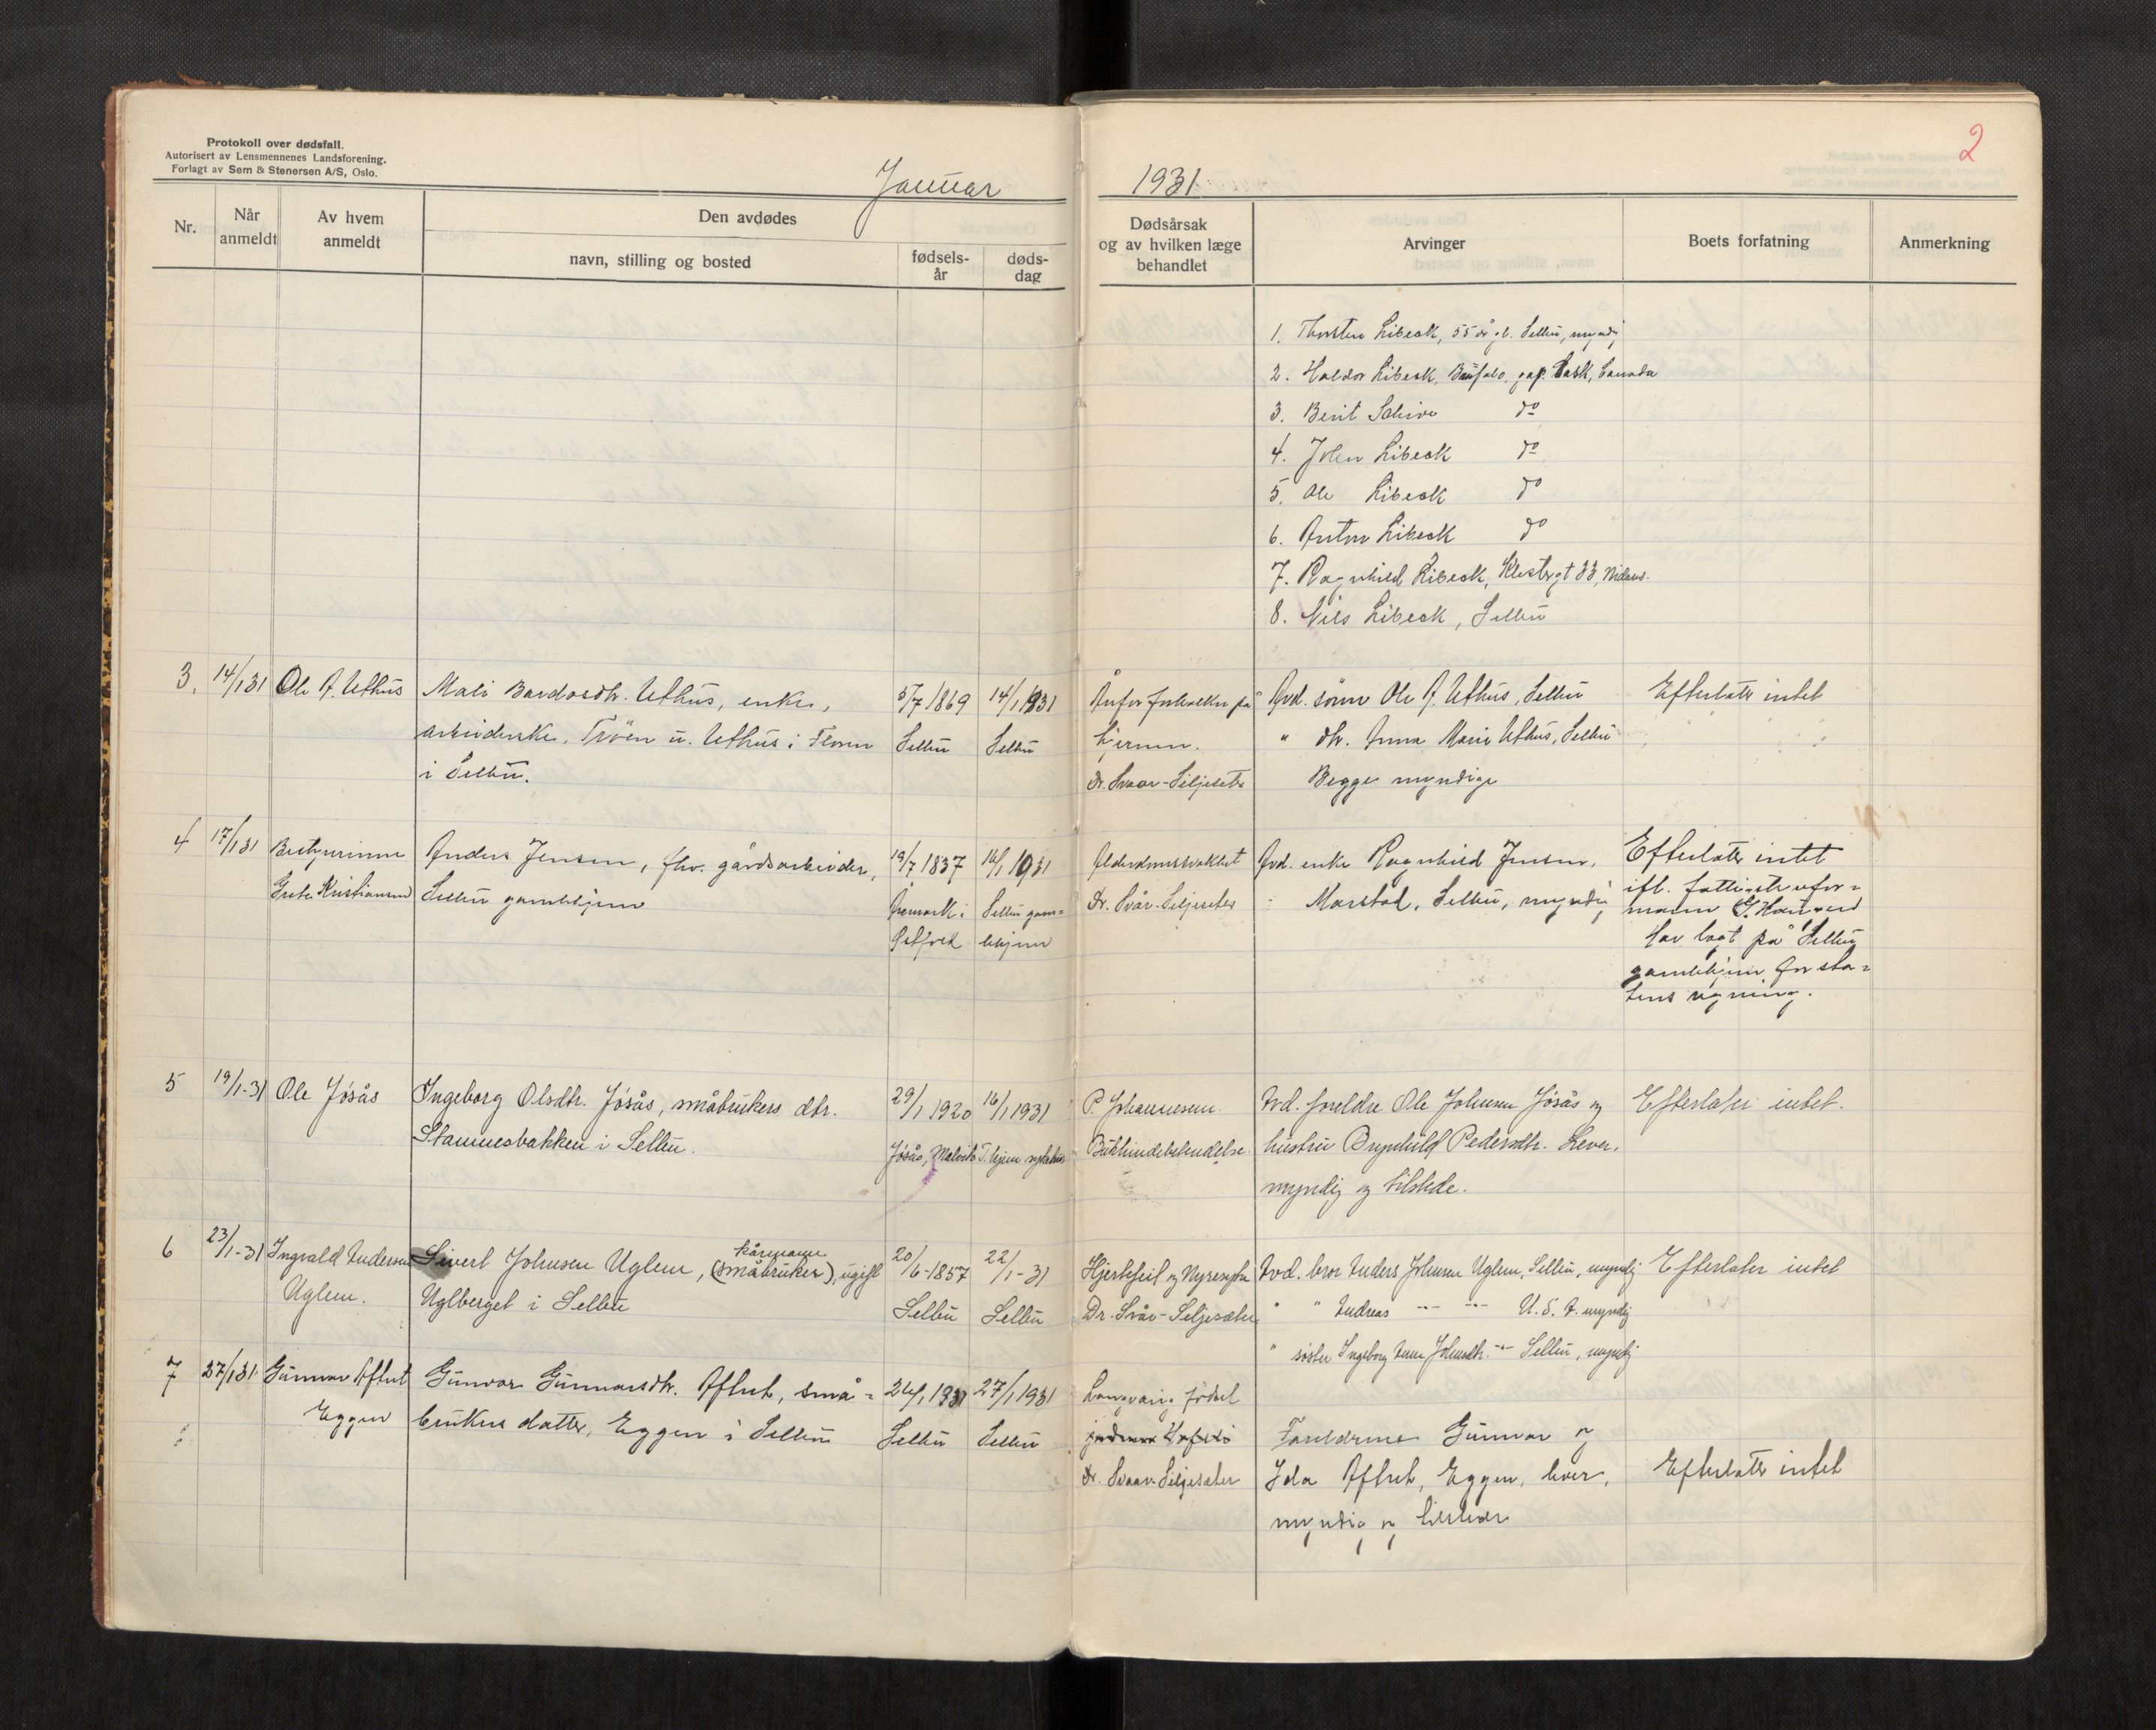 Protokoll over dødsfall.
Autorisert av Lensmennenes Landsforening.
Forlagt av Sem & Stenersen A/S, Oslo.
Januar
1931
2
Nr.
Når anmeldt
Av hvem anmeldt
Den avdødes
navn, stilling og bosted
fødsels-
år
døds-
dag
Dødsårsak
og av hvilken læge
behandlet
Arvinger
Boets forfatning
Anmerkning
1. Thorsten Libeck, 55 år gl. Selbu, myndig
2. Haldor Libeck, Sask, Canada
3. Berit do
4. John Libeck do
5. Ole Libeck do
6. Anton Libeck do
7. Ragnhild Libeck, 33, Nidaros.
8. Nils Libeck, Selbu
3. 14/1 31 Ole A. Uthus
Mali Bardosdtr. Uthus, enke,
arbeiderske, Trøen u. Uthus i Floren
i Selbu.
5/7 1869
Selbu
14/1 1931
Selbu
på
hjernen.
Dr. Svaar-Seljesæter
Avd. sønn Ole A. Uthus, Selbu
" dtr. Anna Marie Uthus, Selbu
Begge myndige
Efterlater intet
4 17/1 31 Bestyrerinne
Grete Kristiansen
Anders Jensen, fhv. gårdsarbeider,
Selbu gamlehjem
19/7 1837
Aremark i
Østfold
16/1 1931
Selbu gam=
lehjem
Alderdomssvakhet
Dr. Svår-Seljesæter
Avd. enke Ragnhild Jensen,
Marstad, Selbu, myndig
Efterlater intet
ifl. fattigstyrefor=
mann
Har lagt på Selbu
gamlehjem for sta=
tens regning.
5 19/1-31 Ole Jøsås
Ingeborg Olsdtr. Jøsås, småbrukers dtr.
Stammesbakken i Selbu.
29/1 1920
Jøsås, Malvik
16/1 1931
T.hjem sykehus
P. Johannesen.
Bukhindebetendelse.
Avd. foreldre Ole Johnsen Jøsås og
hustru Brynhild Pedersdtr. Lever,
myndig og tilstede.
Efterlater intet.
6 23/1-31 Ingvald Andersen
Uglem.
kårmann
Sivert Johnsen Uglem, (småbruker), ugift
Uglberget i Selbu
20/6-1857
Selbu
22/1-31
Selbu
Hjertefeil og Nyresyke
Dr. Svår-Seljesæter
Avd. bror Anders Johnsen Uglem, Selbu, myndig
" " Andreas -"- -"- U.S.A. myndig
" søster Ingeborg Anne Johnsdtr. -"- Selbu, myndig
Efterlater intet
7 27/1 31 Gunnar Aftret
Eggen
Gunvor Gunnarsdtr. Aftret, små=
brukers datter, Eggen i Selbu
24/1 1931
Selbu
27/1 1931
Selbu
Langvarig fødsel
Dr. Svaar-Seljesæter
Foreldrene Gunnar og
Ida Aftret, Eggen, lever,
myndig og tilstede
Efterlater intet